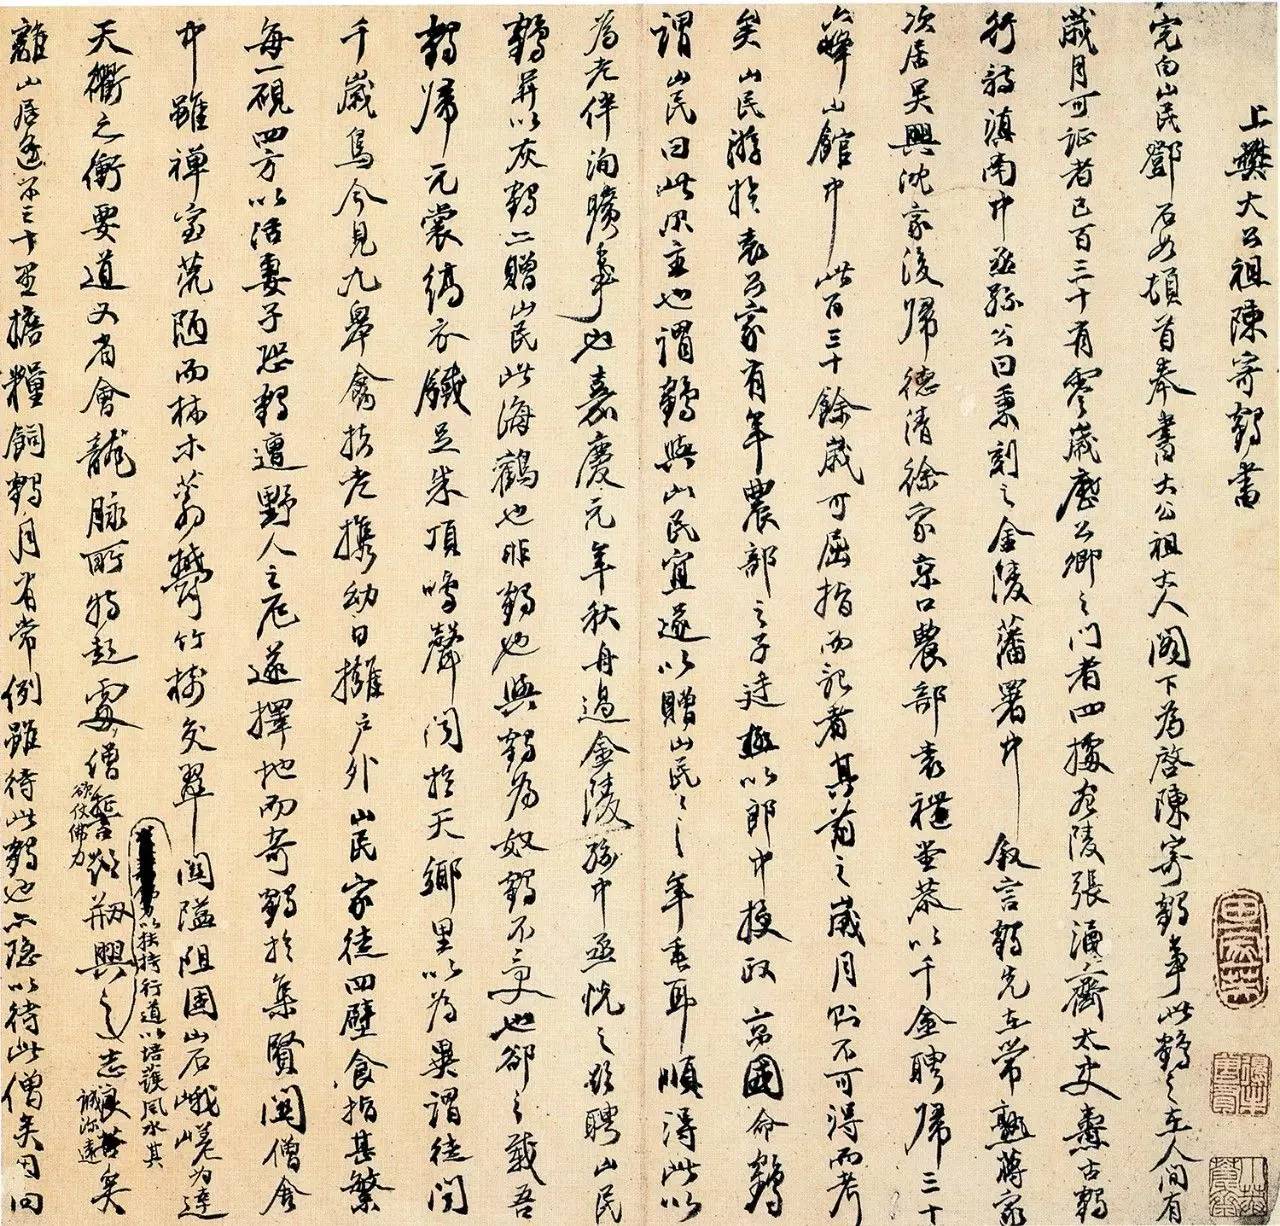 上樊大公祖陳寄鶴書
完白山民鄧石如頓首奉書大公祖大人閣下為啓陳寄鶴事此鶴之在人間有
歲月可証者已百三十有零歲歷公卿之門者四據在陵張酒齋太史壽古鶴
行詩滇南中丞孫公曰秉刻之金陵藩署中敘言鶴先在常熟蔣家
次居吳興沈家後歸德清徐家京口農部袁禮堂恭以千金聘歸三十
六峰山館中此百三十餘歲可屈指而記者其前之歲月則不可得而考
矣山民游於袁公家有年農部之子廷極以郎中授政京國命鶴
謂山民曰此汝主也謂鶴與山民宜遂以贈山民之年垂耳順得此以
為老伴洵曠事也嘉慶元年秋舟過金陵孫中丞悅之欲聘山民
鶴并以灰鶴二贈山民此海鶴也非鶴也與鶴為奴鶴不受也卻之載吾
鶴歸元裳縞衣鐵足朱頂鳴聲聞於天鄉里以為異謂徒聞
千歲鳥今見九皋禽扶老攜幼日擁戶外山民家徒四壁食指甚繁
每一硯四方以活妻子恐鶴遭野人之厄遂擇地而寄鶴於集賢關僧舍
中雖禪室荒陋而林木蓊鬱竹樹交翠關隘阻固山石峨嵯為達
天衢之衝要道又省會龍脈所特起處僧誓欲剏興之志良苦矣
欲仗佛力
以扶持行道以培護風水其
誠深遠
離山居遙不三十里擔糧飼鶴月有常例雖待此鶴也亦隱以待此僧矣因向